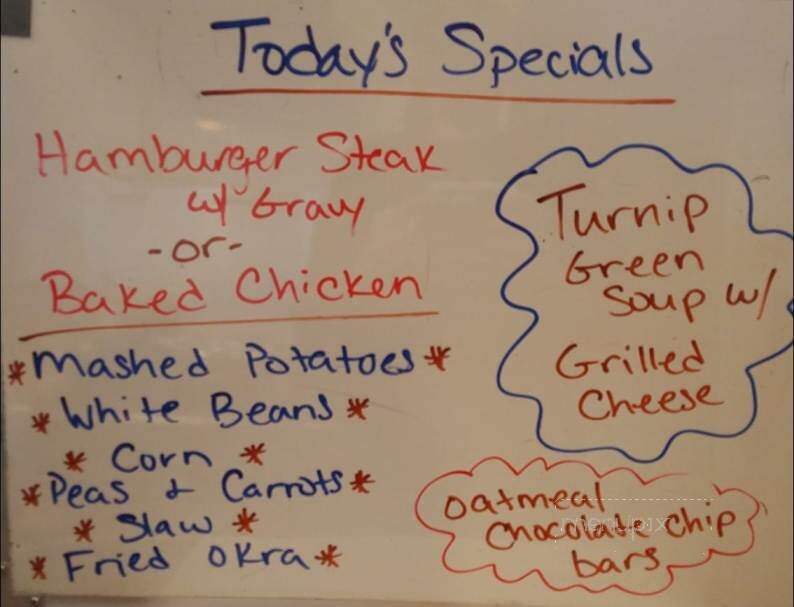 Today's Specials
Hamburger Steak
w/ Gravy
-or-
Baked Chicken
*Mashed Potatoes*
*White Beans*
*Corn*
*Peas & Carrots*
*Slaw*
*Fried Okra*
Turnip
Green
Soup w/
Grilled
Cheese
Oatmeal
Chocolate Chip
bars
menupix